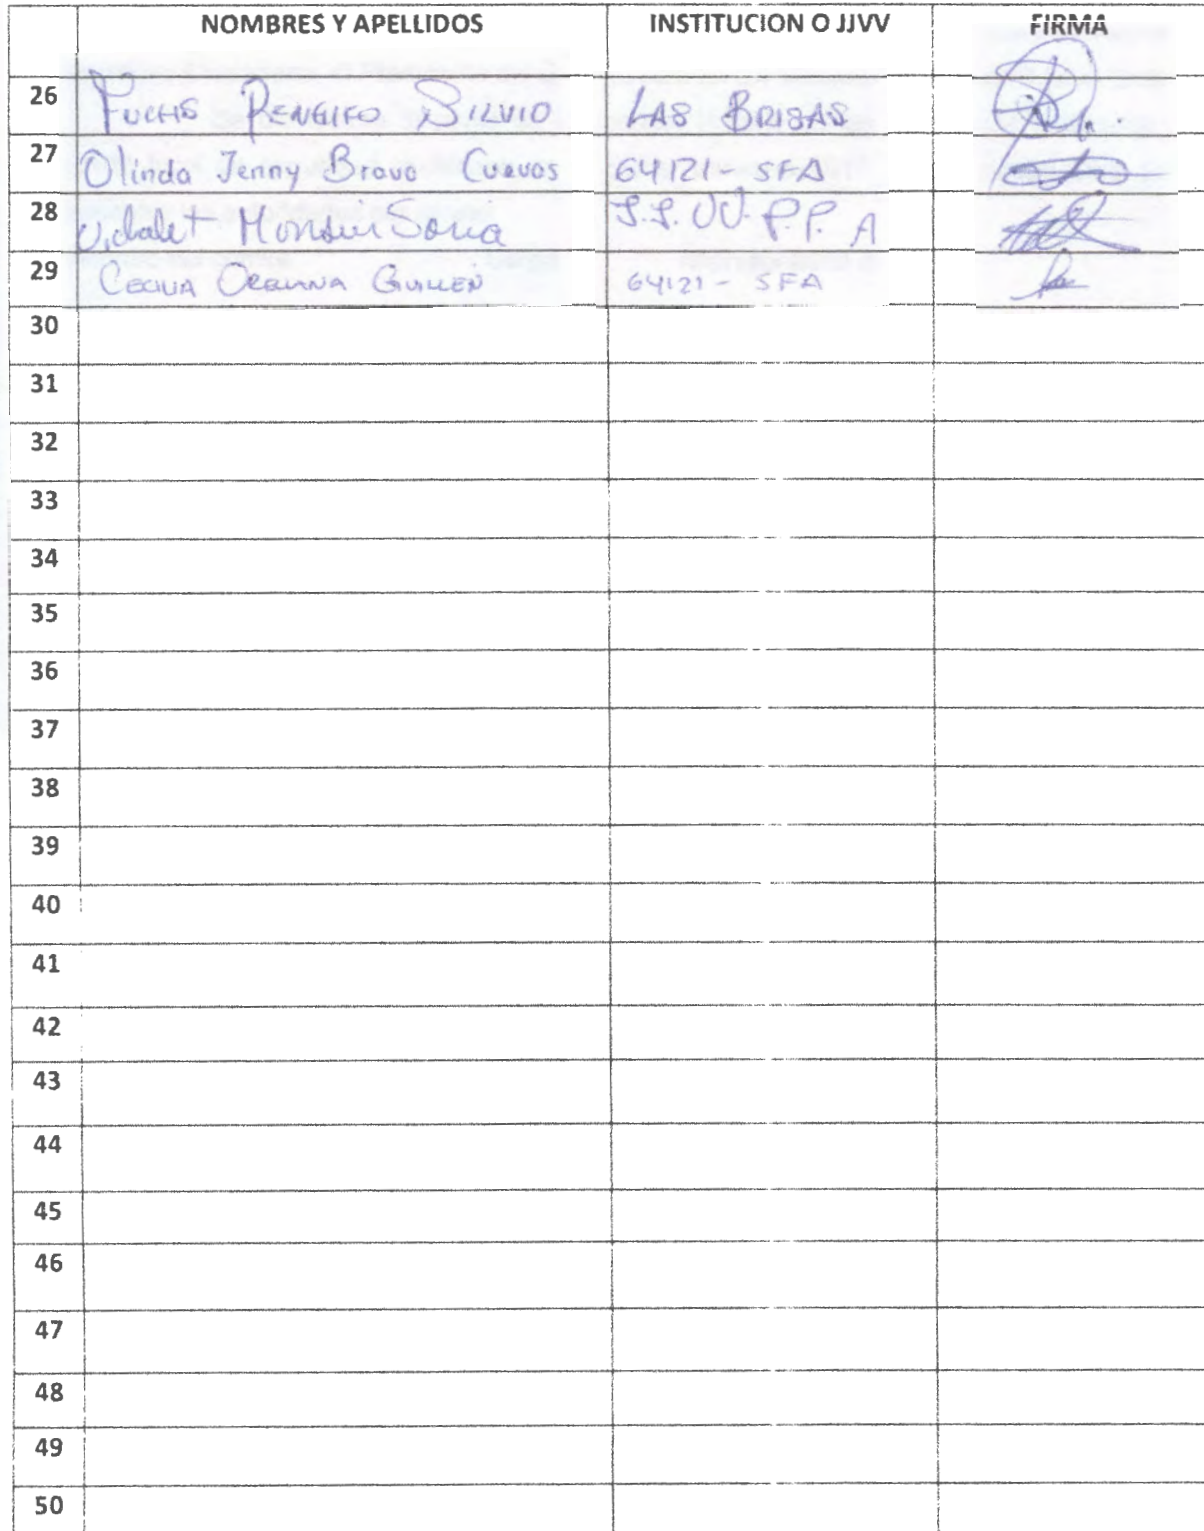 NOMBRES Y APELLIDOS INSTITUCION O JJVV FIRMA
26 FUCHS RENGIFO SILVIO LAS BRISAS
27 Olinda Jenny Bravo Cuevas 64121 - SFA
28 Vidalet Sonia J.J. VV. P.P. A
29 CECILIA ORELLANA GUILLEN 64121 - SFA
30
31
32
33
34
35
36
37
38
39
40
41
42
43
44
45
46
47
48
49
50